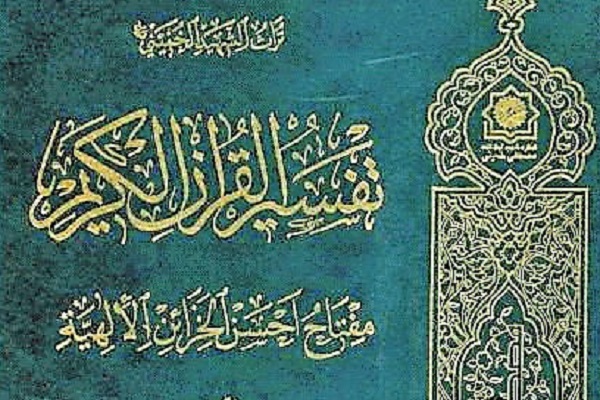 تراث الشهيد الخميني
تفسير القرآن الكريم
مفتاح أحسن الخزائن الإلهية